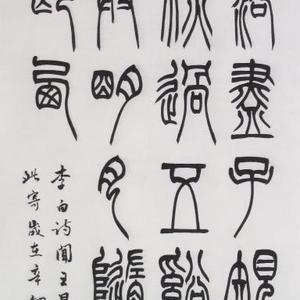 落盡子規
標過五谿
與明月隨
郎西
李白詩聞王昌
此寄歲在辛